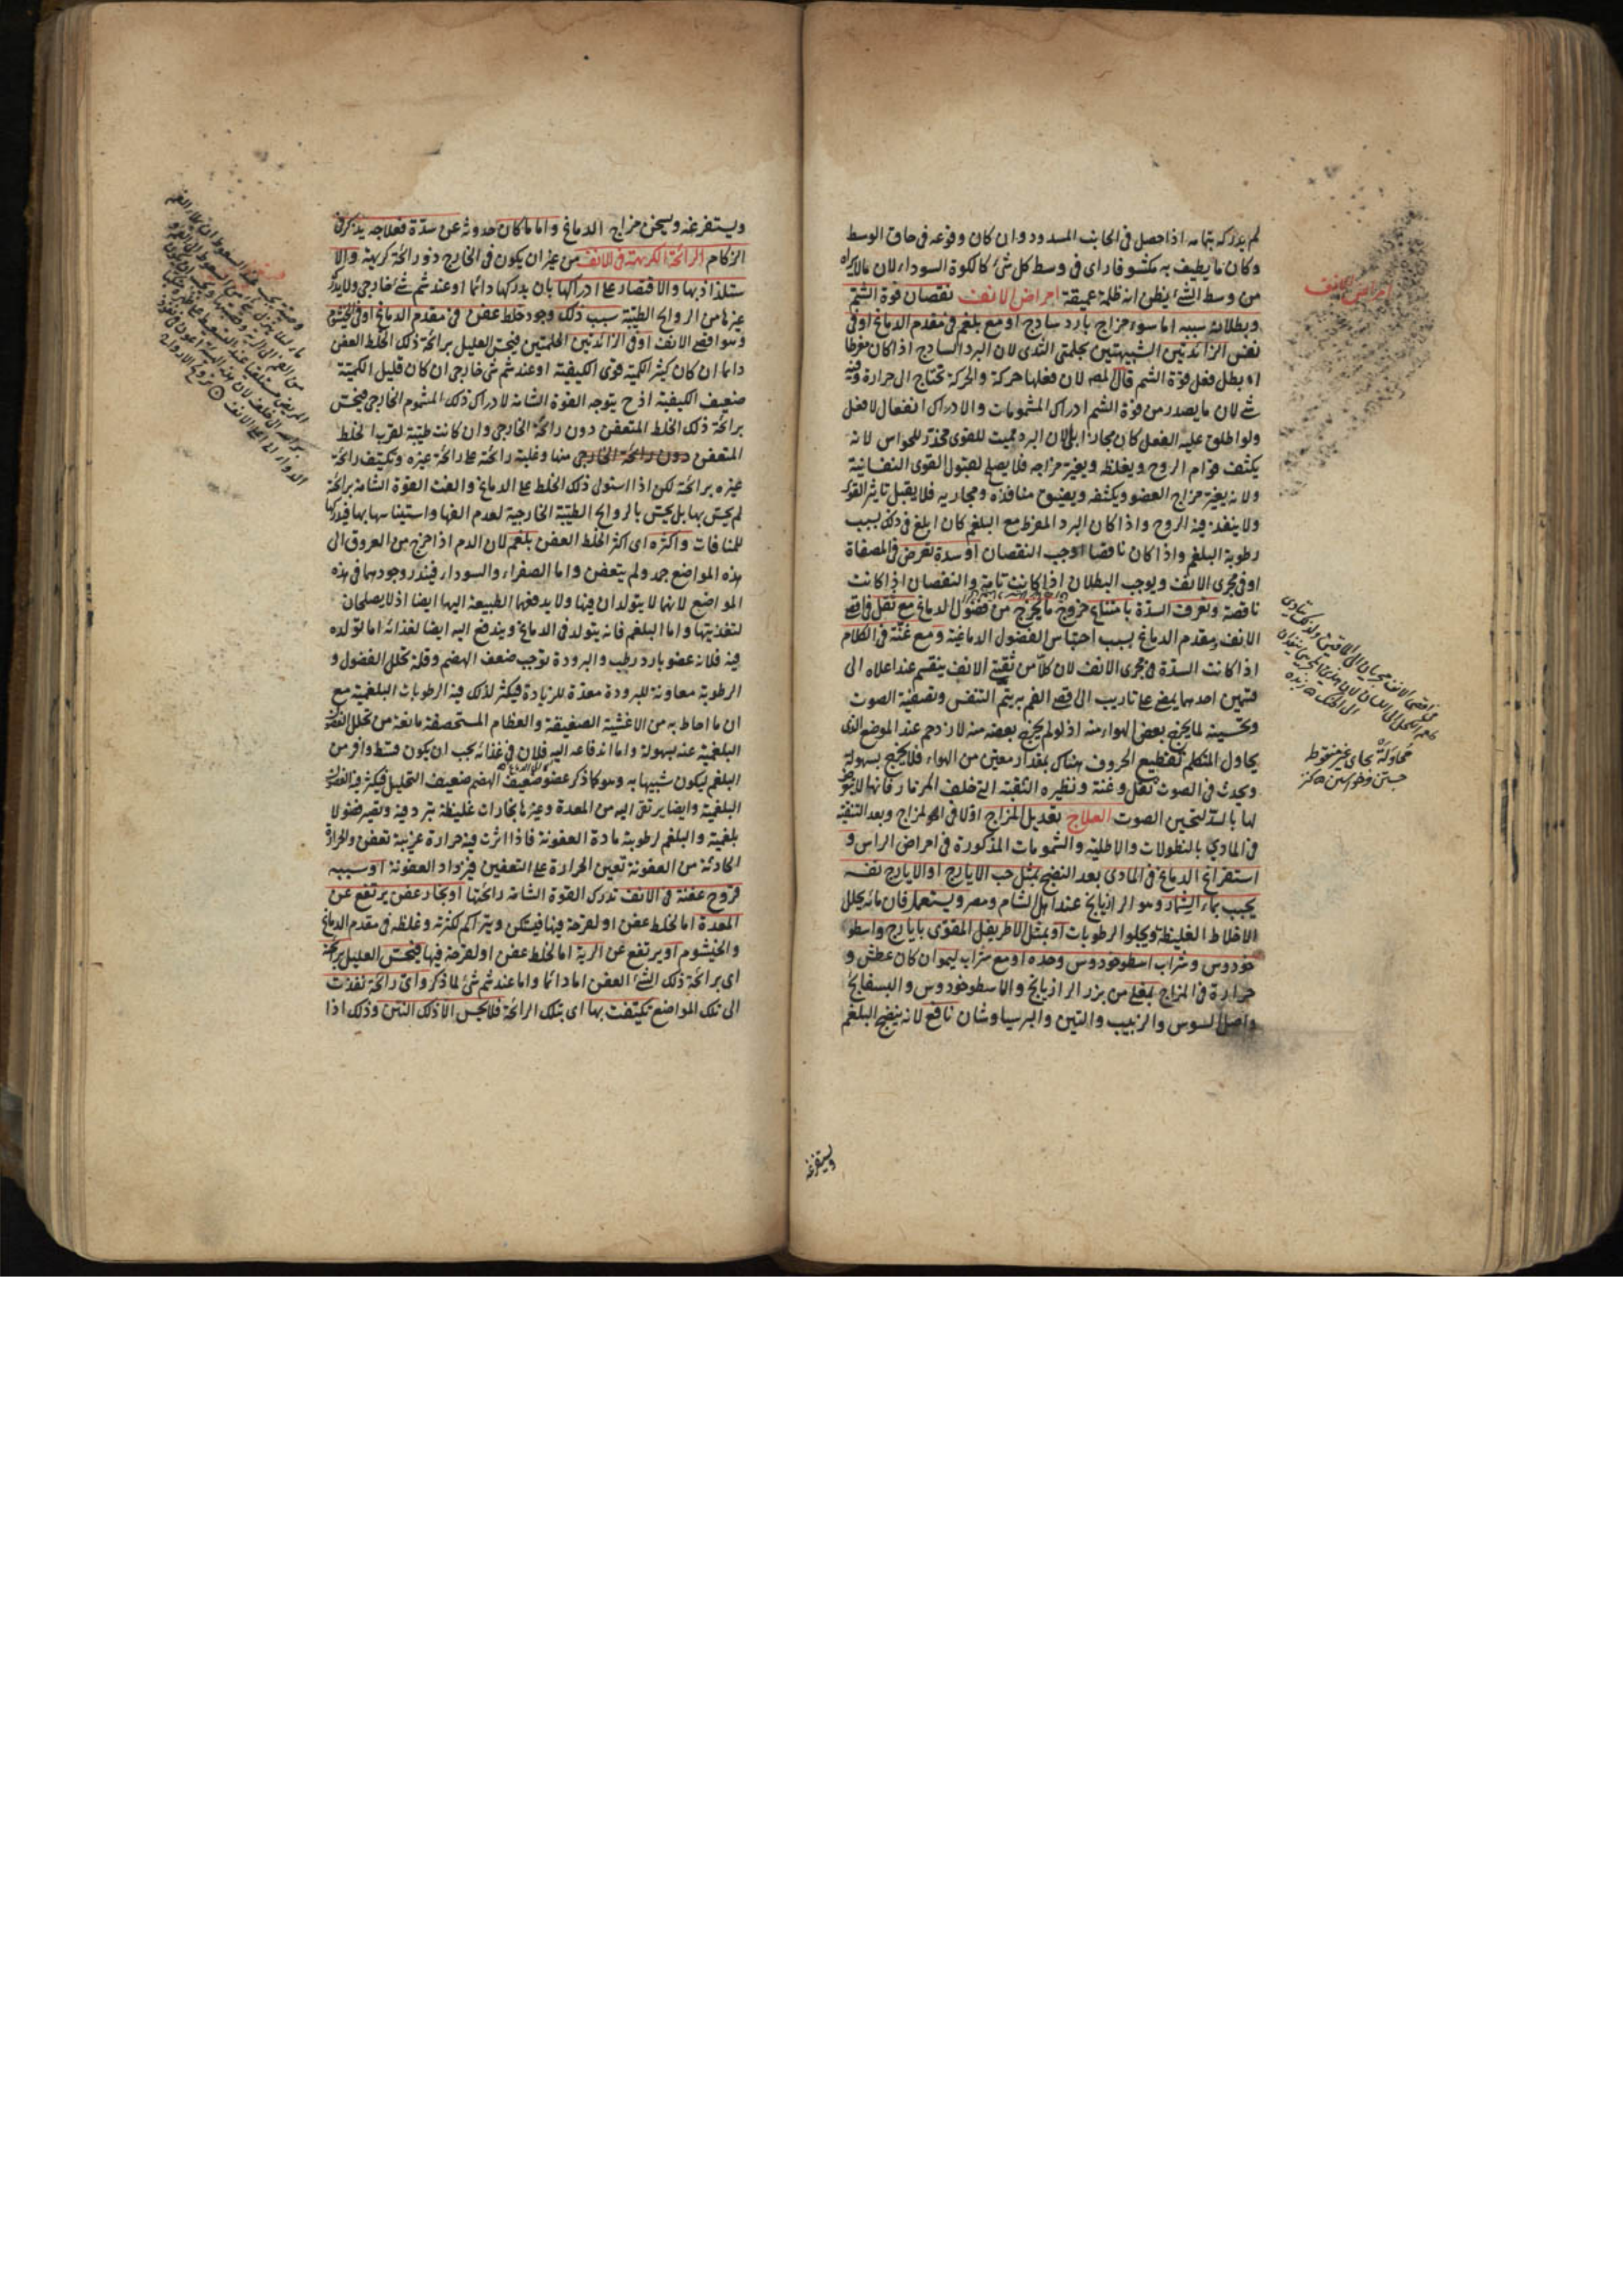 لم يدركه بتمامه اذا حصل في الجانب المسدود وان كان وقوعه في حاق الوسط
وكان ما يطيف به مكشوفا راى في وسط كل شئ كالكوة السوداء لان مالا يراه
من وسط الشئ يظن انه ظلمة عميقة امراض الانف نقصان قوة الشم
وبطلانه سببه اما سوء مزاج بارد ساذج او مع بلغم في مقدم الدماغ او في
نفس الزائدتين الشبيهتين بحلمتي الثدي لان البرد الساذج اذا كان مفرطا
ابطل فعل قوة الشم قال المص لان فعلها حركة والحركة تحتاج الى حرارة وفيه
شئ لان ما يصدر من قوة الشم ادراك المشمومات والادراك انفعال لا فعل
ولو اطلق عليه الفعل كان مجازا بل لان البرد مميت للقوى مخدر للحواس لانه
يكثف قوام الروح ويغلظه ويغير مزاجه فلا يصلح لقبول القوى النفسانية
ولانه يغير مزاج العضو ويكثفه ويضيق منافذه ومجاريه فلا يقبل تاثير القوى
ولا ينفذ فيه الروح واذا كان البرد المفرط مع البلغم كان ابلغ في ذلك بسبب
رطوبة البلغم واذا كان ناقصا اوجب النقصان او سدة تعرض في المصفاة
او في مجرى الانف ويوجب البطلان اذا كانت تامة والنقصان اذا كانت
ناقصة وتعرف السدة بامتناع خروج ما يخرج من فضول الدماغ مع ثقل في اقصى
الانف ومقدم الدماغ بسبب احتباس الفضول الدماغية ومع غنة في الكلام
اذا كانت السدة في مجرى الانف لان كلا من ثقبتي الانف ينقسم عند اعلاه الى
قسمين احدهما يمضي على تاريب الى اقصى الفم به يتم التنفس وتصفية الصوت
وتحسينه لما يخرج بعض الهواء منه اذ لو لم يخرج بعضه منه لازدحم عند الموضع الذي
يحاول المتكلم تقطيع الحروف هناك بمقدار معين من الهواء فلا يخرج بسهولة
ويحدث في الصوت ثقل وغنة ونظيره الثقبة التي خلف المزمار فانها لا يتعرض
لها بالسد لتحسين الصوت العلاج تعديل المزاج اولا في المزاج وبعد التنقية
في المادي بالنطولات والاطلية والشمومات المذكورة في امراض الراس و
استفراغ الدماغ في المادي بعد النضج بمثل حب الايارج او الايارج نفسه
يحبب بماء الشمار وهو الرازيانج عند اهل الشام ومصر ويستعمل فان مائه يحلل
الاخلاط الغليظة ويجلو الرطوبات او بمثل الاطريفل المقوى بايارج واسطو
خودوس وشراب اسطوخودوس وحده او مع شراب ليمو ان كان عطش و
حرارة في المزاج بمغلى من بزر الرازيانج والاسطوخودوس والبسفايج
واصل السوس والزبيب والتين والبرسياوشان نافع لانه ينضج البلغم
ويستفرغه
امراض الانف
محاولة بجاى غير منقوط
جستن وخواستن كنز
ويستفرغه ويسخن مزاج الدماغ واما ما كان حدوثه عن سدة فعلاجه يذكر في
الزكام الرائحة الكريهة في الانف من غير ان يكون في الخارج ذو رائحة كريهة والا
ستلذاذ بها والاقتصار على ادراكها بان يدركها دائما او عند شم شئ خارجي ولا يدرك
غيرها من الروايح الطيبة سبب ذلك وجود خلط عفن في مقدم الدماغ او في الخيشوم
وهو اقصى الانف او في الزائدتين الحلمتين فيحس العليل برائحة ذلك الخلط العفن
دائما ان كان كثير الكمية قوى الكيفية او عند شم شئ خارجي ان كان قليل الكمية
ضعيف الكيفية اذ ح يتوجه القوة الشامة لادراك ذلك المشموم الخارجي فيحس
برائحة ذلك الخلط المتعفن دون رائحة الخارجي وان كانت طيبة لقرب الخلط
المتعفن دون رائحة الخارجي منها وغلبة رائحته على رائحة غيره وتكيف رائحة
غيره برائحته لكن اذا استولى ذلك الخلط على الدماغ والفت القوة الشامة برائحته
لم يحس بها بل يحس بالروايح الطيبة الخارجية لعدم الفها واستيناسها بها فيدركها
للمنافات واكثره اى اكثر الخلط العفن بلغم لان الدم اذا خرج من العروق الى
هذه المواضع جمد ولم يتعفن واما الصفراء والسوداء فيندر وجودهما في هذه
المواضع لانهما لا يتولدان فيها ولا يدفعها الطبيعة اليها ايضا اذ لا يصلحان
لتغذيتها واما البلغم فانه يتولد في الدماغ ويندفع اليه ايضا لغذائه اما تولده
فيه فلانه عضو بارد رطب والبرودة توجب ضعف الهضم وقلة تحلل الفضول و
الرطوبة معاونة للبرودة معدة للزيادة فيكثر لذلك فيه الرطوبات البلغمية مع
ان ما احاط به من الاغشية الصفيقة والعظام المستحصفة مانعة من تحلل الفضول
البلغمية عنه بسهولة واما اندفاعه اليه فلان في غذائه يجب ان يكون قسط وافر من
البلغم ليكون شبيها به وهو كما ذكر عضو ضعيف الهضم ضعيف التحليل فيكثر فيه الفضول
البلغمية وايضا يرتقى اليه من المعدة وغيرها بخارات غليظة تبرد فيه وتصير فضولا
بلغمية والبلغم لرطوبته مادة العفونة فاذا اثرت فيه حرارة غريبة تعفن والحرارة
الحادثة من العفونة تعين الحرارة على التعفين فيزداد العفونة او سببه
قروح عفنة في الانف تدرك القوة الشامة رائحتها او بخار عفن يرتفع عن
المعدة اما لخلط عفن او لقرحة فيها فيتمكن ويتراكم لكثرته وغلظه في مقدم الدماغ
والخيشوم او يرتفع عن الرية اما لخلط عفن او لقرحة فيها فيحس العليل برائحته
اى برائحة ذلك الشئ العفن اما دائما واما عند شم شئ لما ذكر واى رائحة نفذت
الى تلك المواضع تكيفت بها اى بتلك الرائحة فلا يحس الا ذلك النتن وذلك اذا